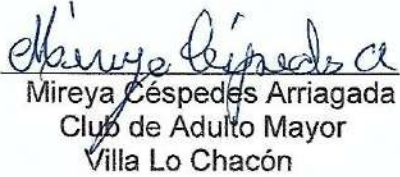 Mireya Céspedes A
Mireya Céspedes Arriagada
Club de Adulto Mayor
Villa Lo Chacón